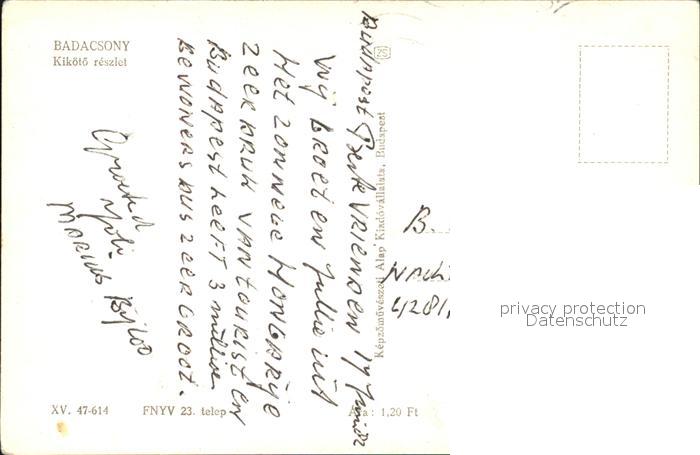 BADACSONY
Kikötő részlet
Budapest Beste VRIENDEN 17 Juni
Wij GROETEN Jullie uit
HET ZONNIGE HONGARIJE
ZEER DRUK VAN TOURISTEN
BUDAPEST HEEFT 3 million
BEWONERS DUS ZEER GROOT.
MARIUS
Képzőművészeti Alap Kiadóvállalata, Budapest
B.
4281,
privacy protection
Datenschutz
XV. 47-614
FNYV 23. telep
Ára: 1,20 Ft